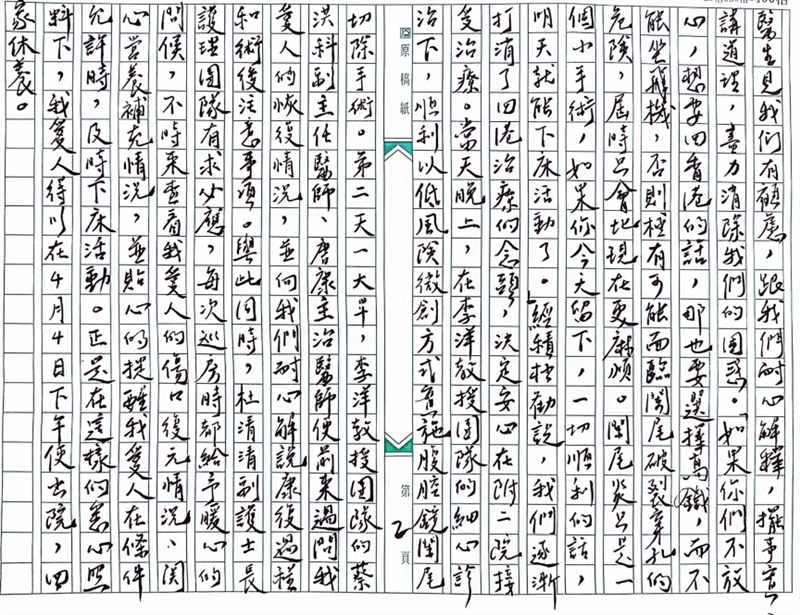 醫生見我們有顧慮，跟我們耐心解釋，擺事實、
講道理，盡力消除我們的困惑。「如果你們不放
心，想要回香港的話，那也要選擇高鐵，而不
能坐飛機，否則極有可能面臨闌尾破裂穿孔的
危險，屆時只會比現在更麻煩。闌尾炎只是一
個小手術，如果你今天留下，一切順利的話，
明天就能下床活動了。」經積極勸說，我們逐漸
打消了回港治療的念頭，決定安心在附二院接
受治療。當天晚上，在李洋教授團隊的細心診
治下，順利以低風險微創方式實施腹腔鏡闌尾
原稿紙 第2頁
切除手術。第二天一大早，李洋教授團隊的蔡
洪科副主任醫師、唐康主治醫師便前來過問我
愛人的恢復情況，並向我們耐心解說康復過程
和術後注意事項。與此同時，杜清清副護士長
護理團隊有求必應，每次巡房時都給予暖心的
問候，不時來查看我愛人的傷口復元情況、関
心營養補充情況，並貼心的提醒我愛人在條件
允許時，及時下床活動。正是在這樣的悉心照
料下，我愛人得以在4月4日下午便出院，回
家休養。